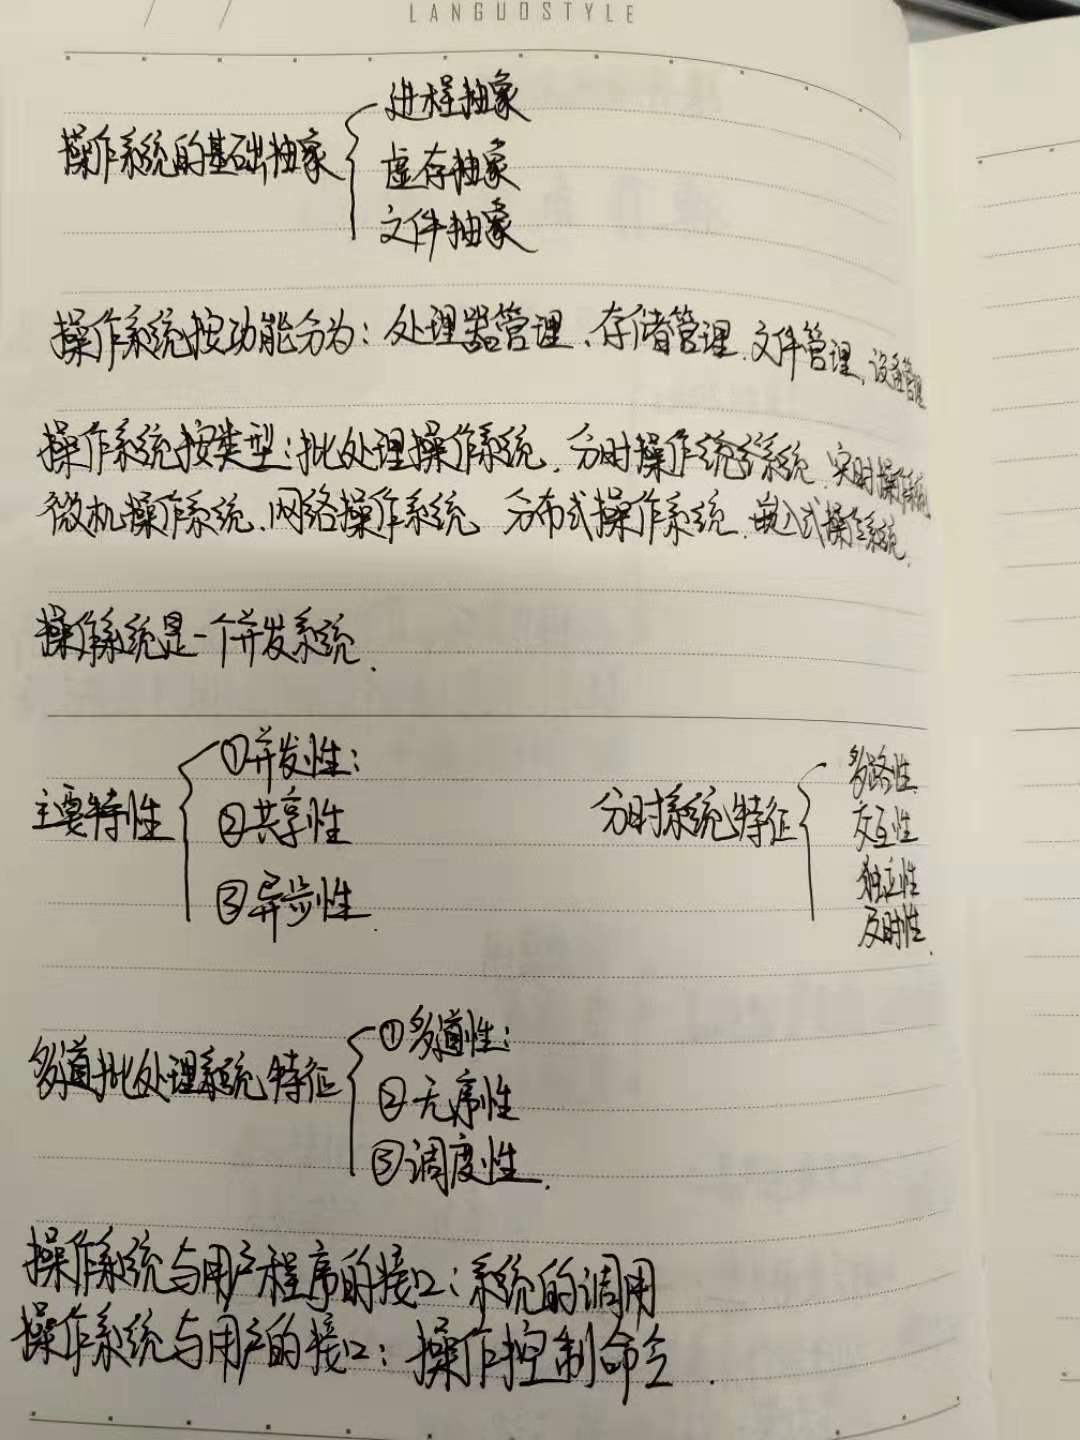 LANGUOSTYLE
操作系统的基础抽象
进程抽象
虚存抽象
文件抽象
操作系统按功能分为：处理器管理、存储管理、文件管理、设备管理
操作系统按类型：批处理操作系统、分时操作系统、实时操作系统
微机操作系统、网络操作系统 分布式操作系统、嵌入式操作系统.
操作系统是一个并发系统.
主要特性
①并发性：
②共享性
③异步性.
分时系统特征
多路性
交互性
独立性
及时性.
多道批处理系统特征
①多道性：
②无序性
③调度性.
操作系统与用户程序的接口：系统的调用
操作系统与用户的接口：操作控制命令.